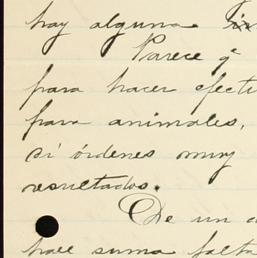 hay alguna
Parece q̃
para hacer efecti
para animales,
di órdenes muy
resultados.
De un a
hace suma falta